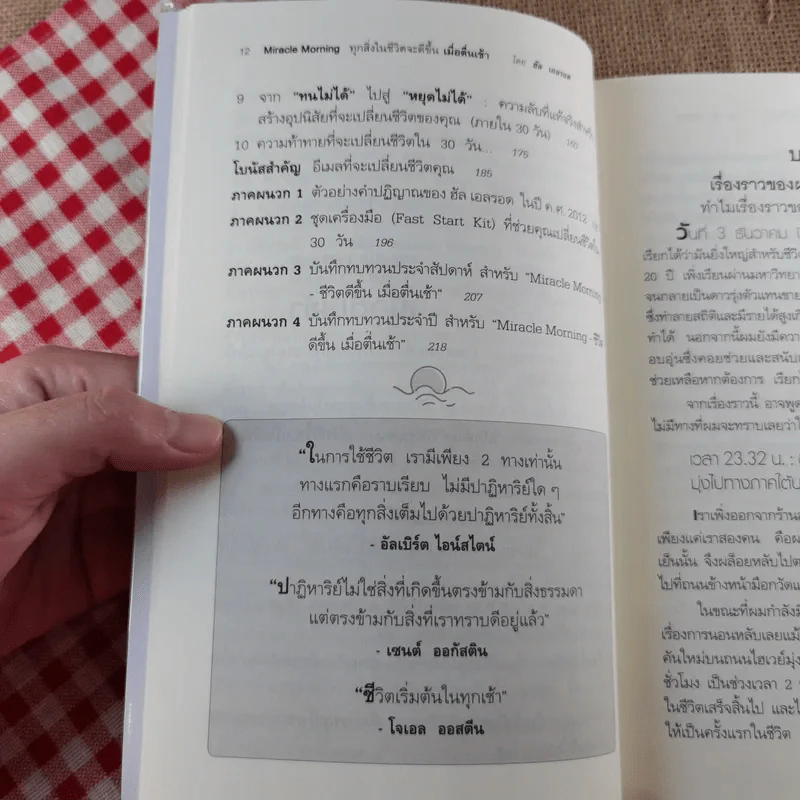 12 Miracle Morning ทุกสิ่งในชีวิตจะดีขึ้น เมื่อตื่นเช้า
โดย ฮัล เอลรอด
9 จาก "ทนไม่ได้" ไปสู่ "หยุดไม่ได้" : ความลับที่แท้จริงสำหรับ
สร้างอุปนิสัยที่จะเปลี่ยนชีวิตของคุณ (ภายใน 30 วัน)
10 ความท้าทายที่จะเปลี่ยนชีวิตใน 30 วัน... 175
โบนัสสำคัญ อีเมลที่จะเปลี่ยนชีวิตคุณ 185
ภาคผนวก 1 ตัวอย่างคำปฏิญาณของ ฮัล เอลรอด ในปี ค.ศ. 2012
ภาคผนวก 2 ชุดเครื่องมือ (Fast Start Kit) ที่ช่วยคุณเปลี่ยนชีวิตใน
30 วัน 196
ภาคผนวก 3 บันทึกทบทวนประจำสัปดาห์ สำหรับ "Miracle Morning
- ชีวิตดีขึ้น เมื่อตื่นเช้า" 207
ภาคผนวก 4 บันทึกทบทวนประจำปี สำหรับ "Miracle Morning - ชีวิต
ดีขึ้น เมื่อตื่นเช้า" 218
"ในการใช้ชีวิต เรามีเพียง 2 ทางเท่านั้น
ทางแรกคือราบเรียบ ไม่มีปาฏิหาริย์ใด ๆ
อีกทางคือทุกสิ่งเต็มไปด้วยปาฏิหาริย์ทั้งสิ้น"
- อัลเบิร์ต ไอน์สไตน์
"ปาฏิหาริย์ไม่ใช่สิ่งที่เกิดขึ้นตรงข้ามกับสิ่งธรรมดา
แต่ตรงข้ามกับสิ่งที่เราทราบดีอยู่แล้ว"
- เซนต์ ออกัสติน
"ชีวิตเริ่มต้นในทุกเช้า"
- โจเอล ออสตีน
เรื่องราวของ
ทำไมเรื่องราวของ
วันที่ 3 ธันวาคม
เรียกได้ว่ามันยิ่งใหญ่สำหรับชีวิต
20 ปี เพิ่งเรียนผ่านมหาวิทยา
จนกลายเป็นดาวรุ่งตัวแทนขาย
ซึ่งทำลายสถิติและมีรายได้สูง
ทำได้ นอกจากนี้ผมยังมีความ
อบอุ่นซึ่งคอยช่วยและสนับ
ช่วยเหลือหากต้องการ เรียก
จากเรื่องราวนี้ อาจพูด
ไม่มีทางที่ผมจะทราบเลยว่า
เวลา 23.32 น. :
มุ่งไปทางภาคใต้
เราเพิ่งออกจากร้าน
เพียงแค่เราสองคน คือ
เย็นนั้น จึงผล็อยหลับไป
ไปที่ถนนข้างหน้ามือกวัด
ในขณะที่ผมกำลัง
เรื่องการนอนหลับเลยแม้
คันใหม่บนถนนไฮเวย์มุ่ง
ชั่วโมง เป็นช่วงเวลา 2
ในชีวิตเสร็จสิ้นไป และ
ให้เป็นครั้งแรกในชีวิต